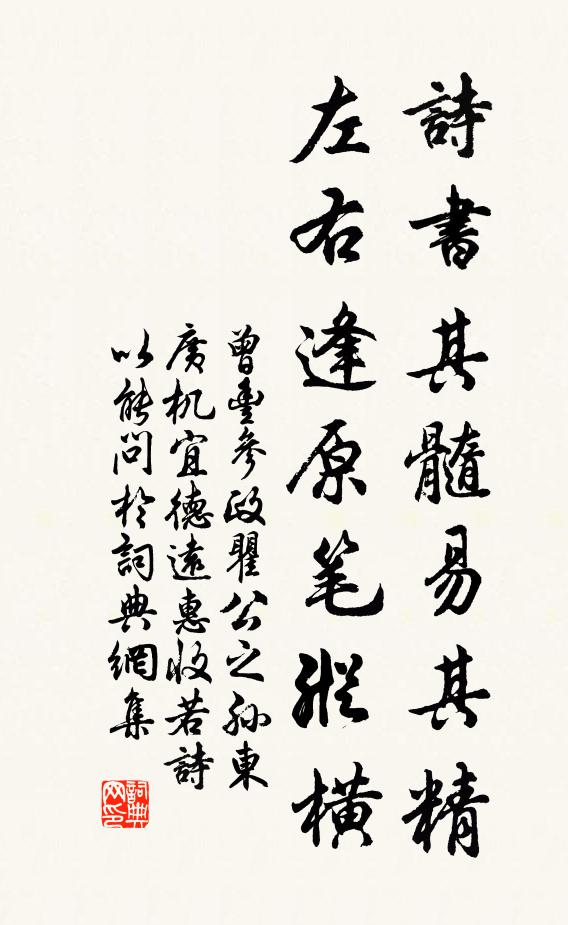 詩書其髓易其精
左右逢原笔縱橫
曾豊參政瞿公之孙東
廣机宜德遠惠收若詩
以能問於詞典網集
詞典
网印